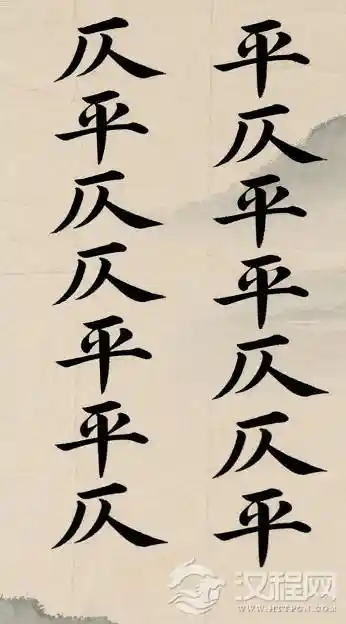 平仄平平仄仄平
仄平仄仄平平仄
汉程网
WWW.HTTPCN.COM